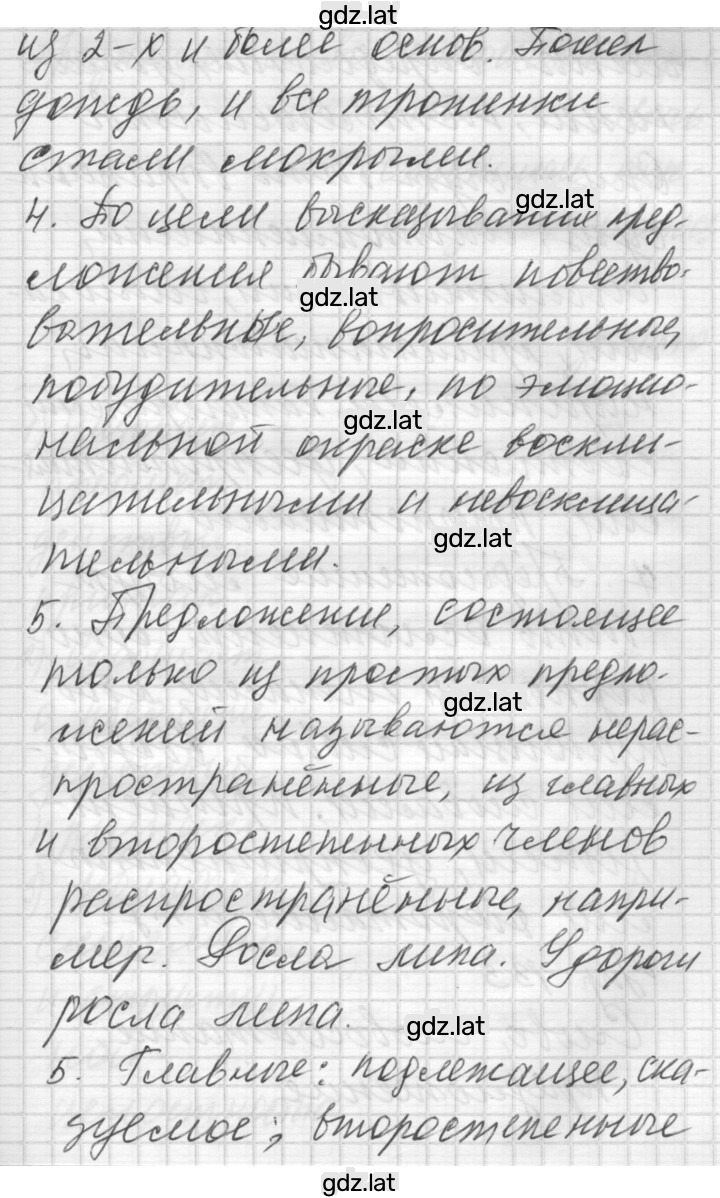 gdz.lat
из 2-х и более основ. Пошел
дождь, и все тропинки
стали мокрыми.
gdz.lat
4. По цели высказывания пред-
ложения бывают повество-
gdz.lat
вательные, вопросительные,
побудительные, по эмоцио-
gdz.lat
нальной окраске воскли-
цательными и невосклица-
gdz.lat
тельными.
5. Предложение, состоящее
только из простых предло-
gdz.lat
жений называются нерас-
пространённые, из главных
и второстепенных членов
распространённые, напри-
мер. Росла липа. У дороги
росла липа.
gdz.lat
5. Главные: подлежащее, ска-
зуемое; второстепенные
gdz.lat